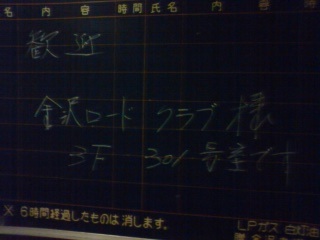 名 内容 時間 氏名 内容
歓迎
金沢ロード クラブ様
3F 301号室です
※ 6時間経過したものは消します。
LPガス 白灯油